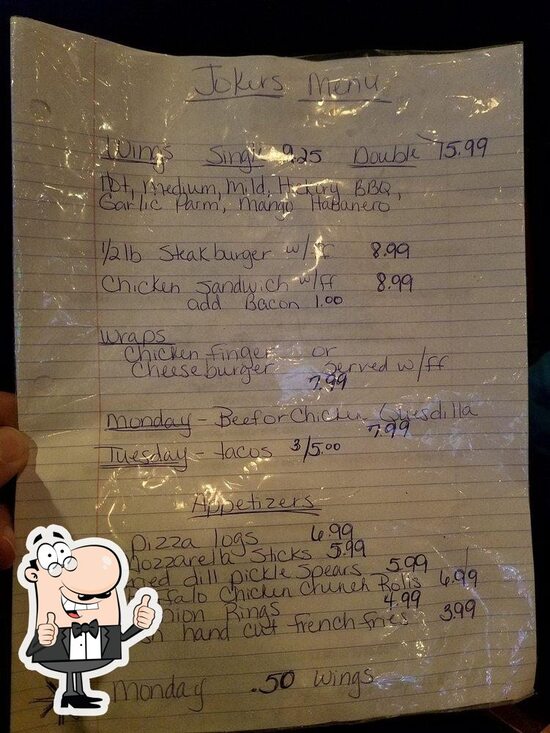 Jokers Menu
Wings Single 9.25 Double 15.99
Hot, Medium, Mild, Honey BBQ,
Garlic Parm, Mango Habanero
1/2lb Steakburger w/ff 8.99
Chicken Sandwich w/ff 8.99
add Bacon 1.00
Wraps
Chicken Finger or
Cheeseburger Served w/ff
7.99
Monday - Beef or Chicken Quesdilla
7.99
Tuesday - tacos 3/5.00
Appetizers
Pizza logs 6.99
Mozzarella Sticks 5.99
dill pickle Spears 5.99
Chicken Chunch Rolls 6.99
Onion Rings 4.99
hand cut french fries 3.99
Monday .50 wings